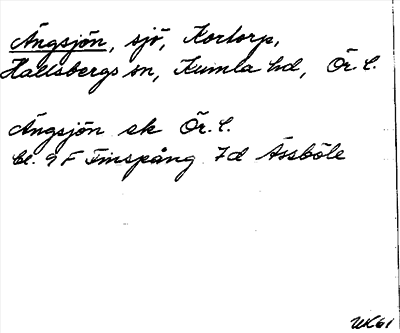 Ängsjön, sjö, Kortorp,
Hallsbergs sn, Kumla hd, Ör. l.
Ängsjön ek Ör. l.
bl. 9 F Finspång 7d Ässböle
WK61